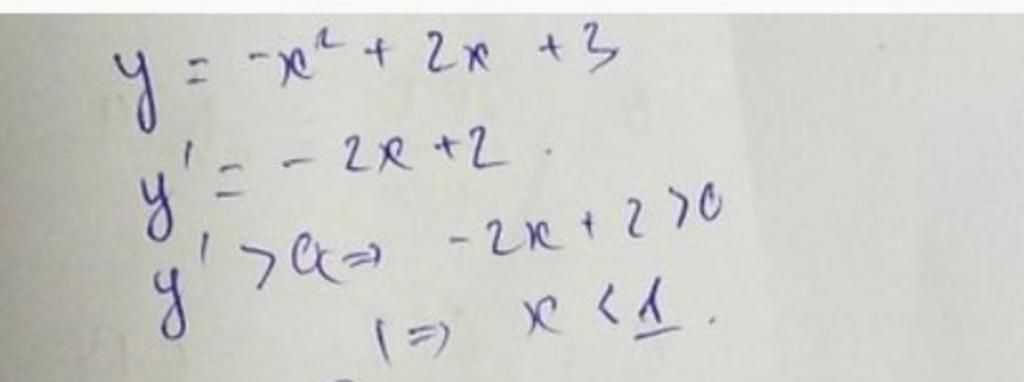 y = -x² + 2x + 3
y' = - 2x + 2 .
y' > 0 => -2x + 2 > 0
=> x < 1 .